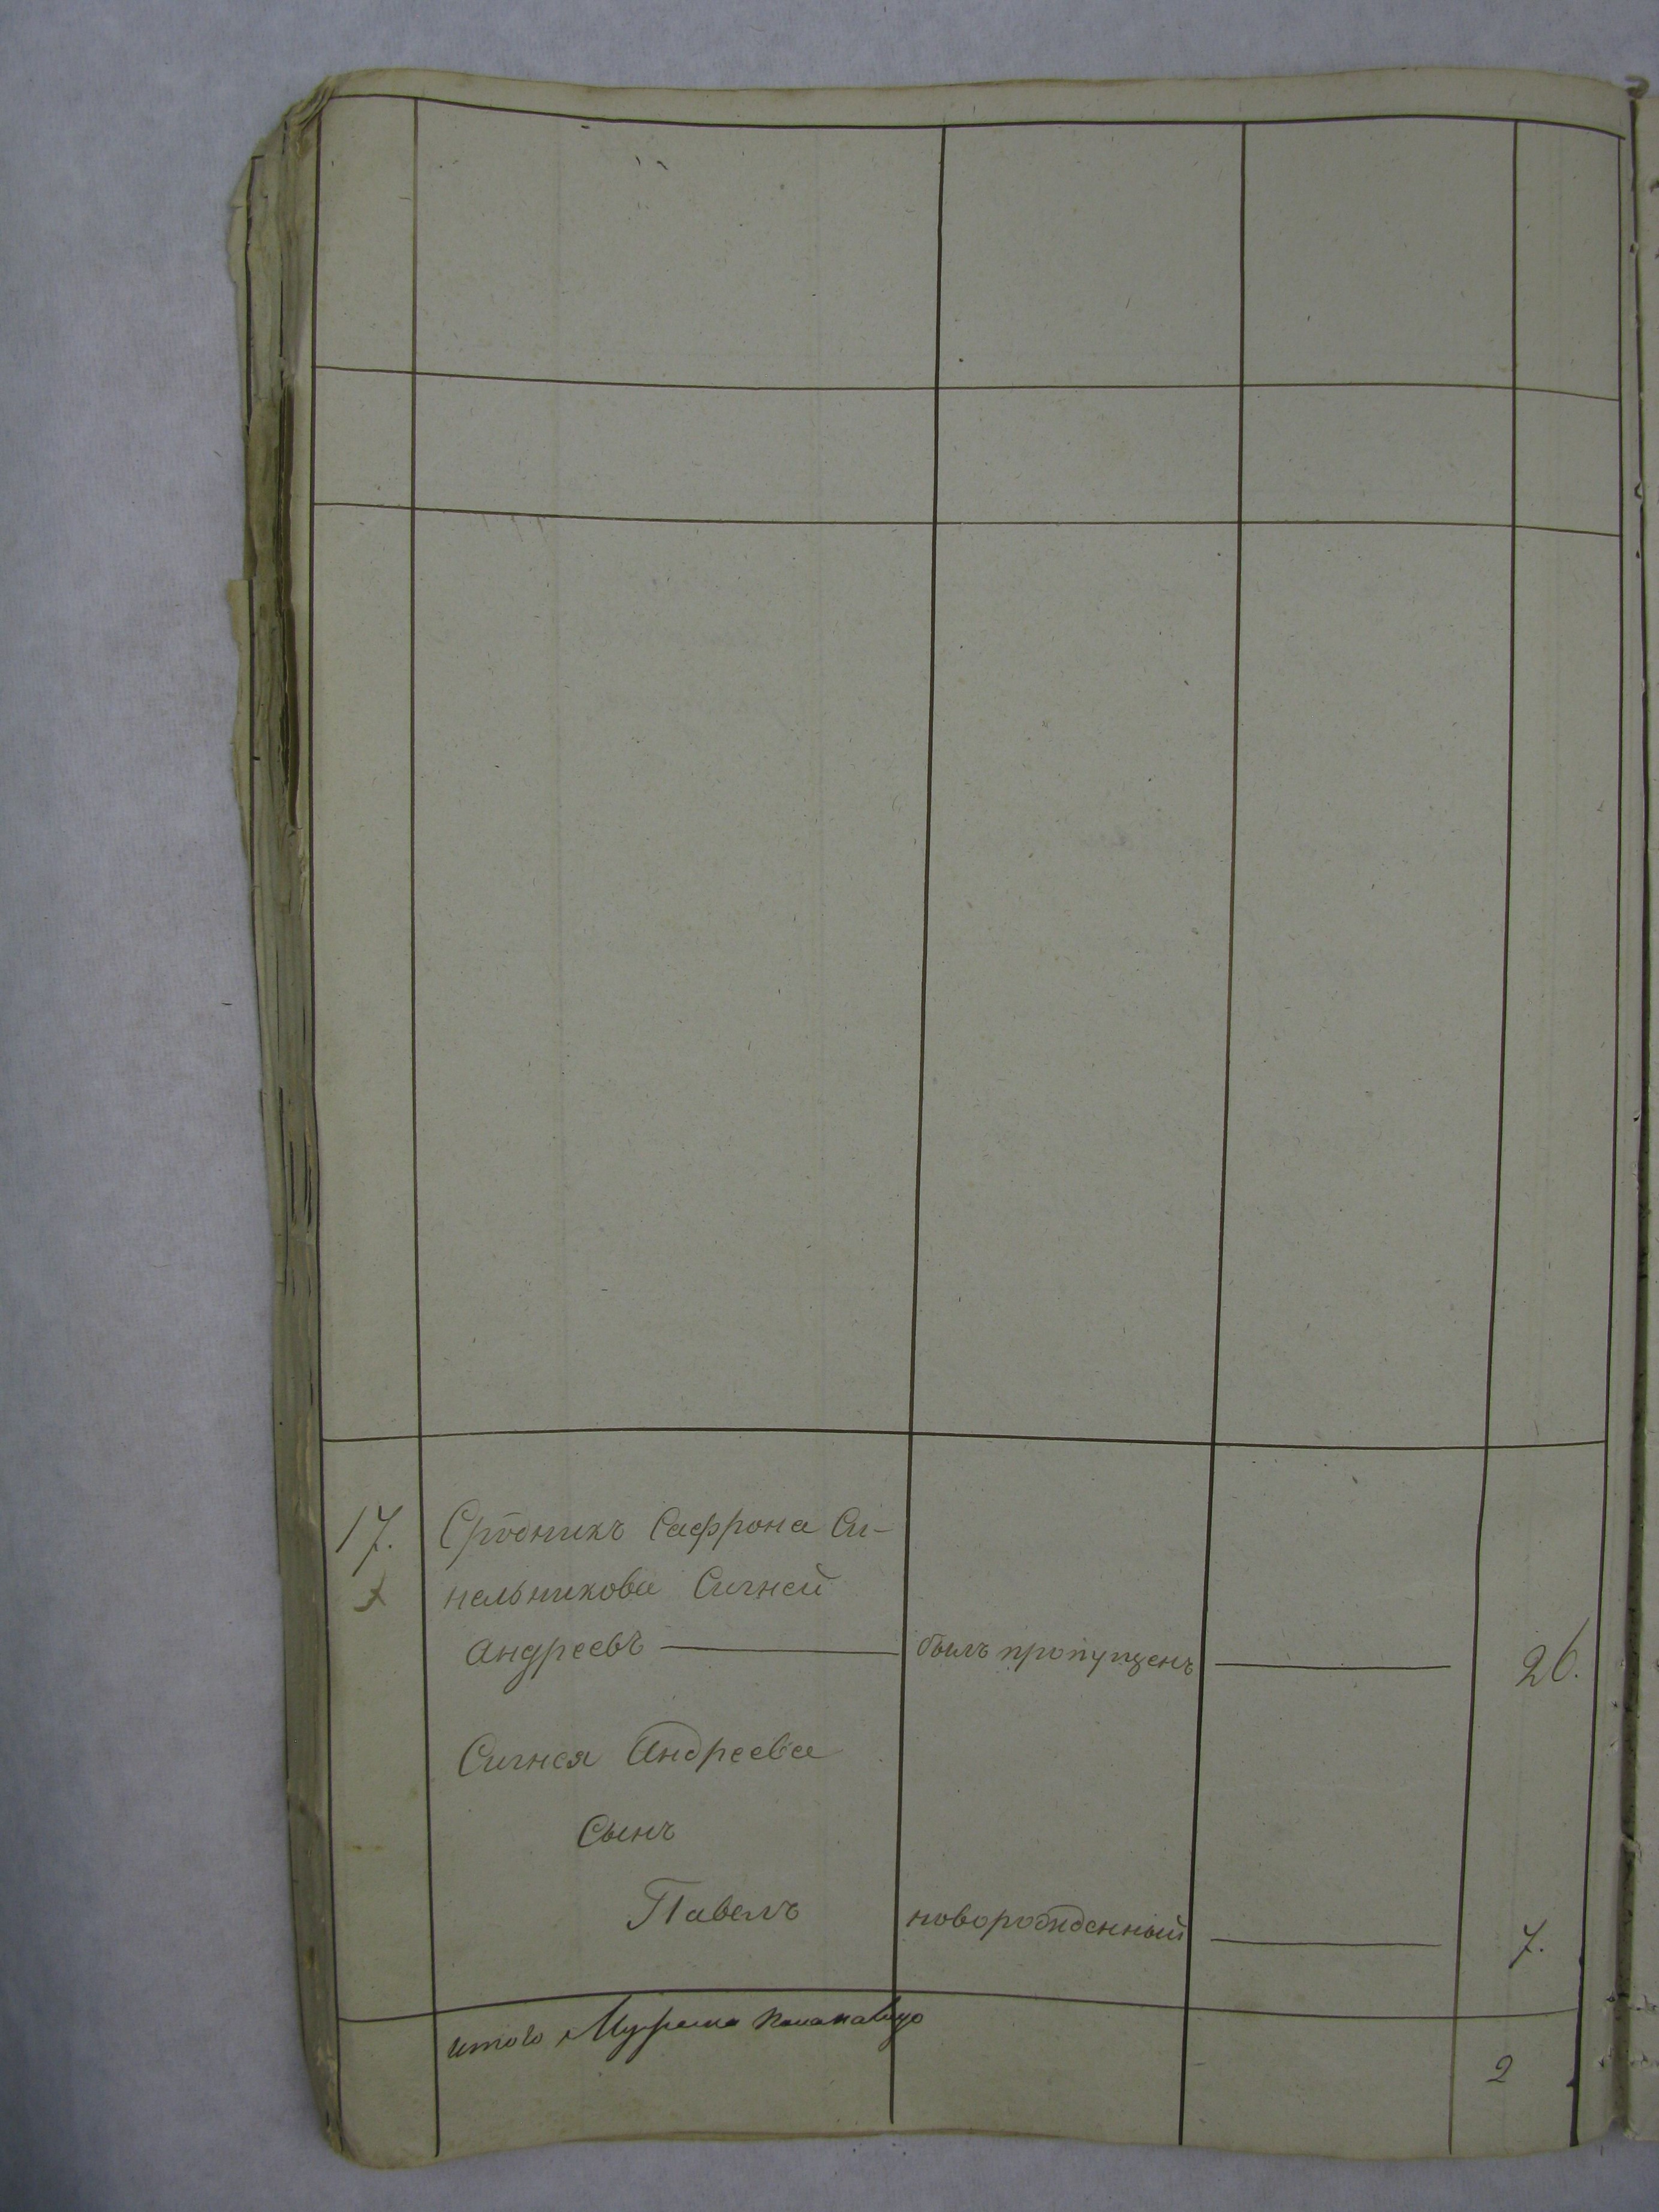 17. Сродникъ Сафрона Си-
нельникова Сигней
андреевъ былъ пропущенъ 26.
Сигнея Андреева
Сынъ
Павелъ новорожденный 7.
итого 2